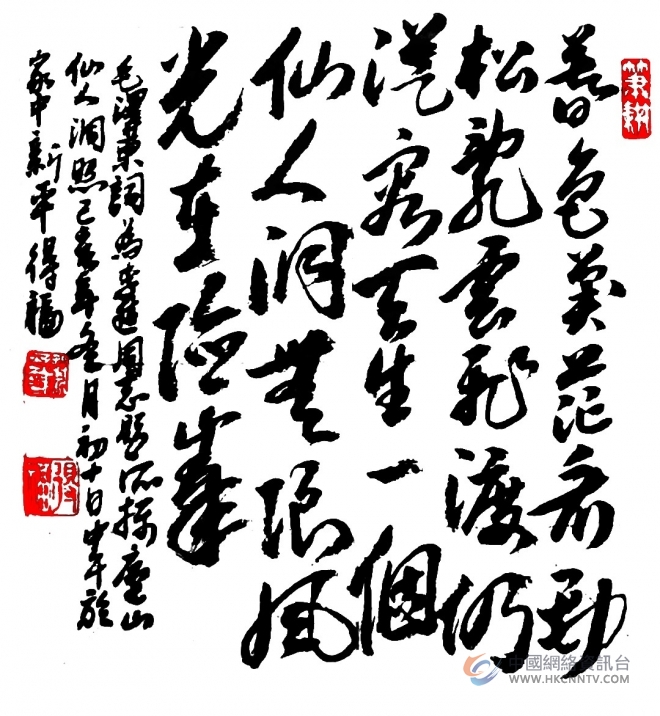 筆耕
暮色蒼茫看勁
松亂雲飛渡仍
從容天生一個
仙人洞無限風
光在險峯
毛澤東詞為李進同志題所攝廬山
仙人洞照己亥年冬月初十日中午於
家中新平得福
中國網絡資訊台
WWW.HKCNNTV.COM